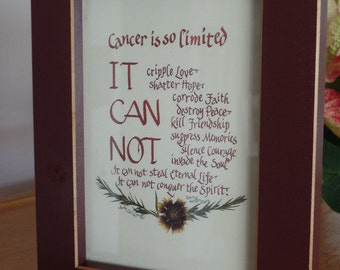 Cancer is so limited
IT cripple Love
shatter Hope
CAN corrode Faith
destroy Peace
kill Friendship
NOT suppress Memories
silence Courage
invade the Soul
It can not steal Eternal Life
It can not conquer the Spirit